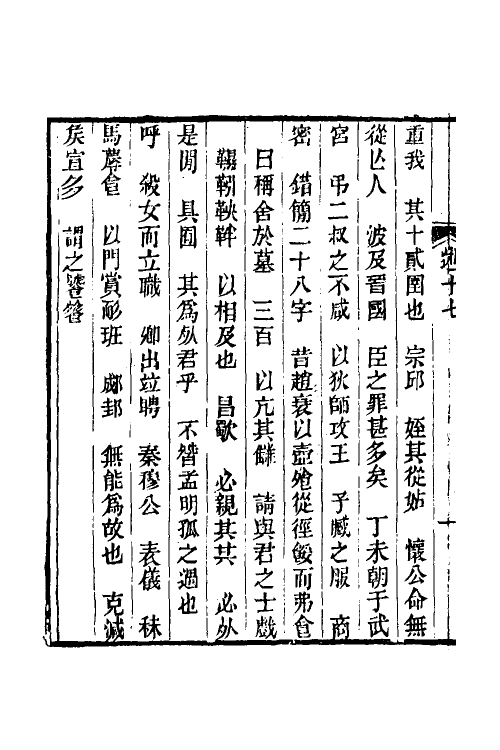 重我　其卜貳圉也　宗邱　姪其從姑　懷公命無
從亾人　波及晉國　臣之罪甚多矣　丁未朝于武
宮　弔二叔之不咸　以狄師攻王　子臧之服　商
密　錯簡二十八字　昔趙衰以壺飧從徑餒而弗食
曰稱舍於墓　三百　以亢其讎　請與君之士戲
韅靷鞅靽　以相及也　昌歜　必親其共　必外
是閒　具囿　其爲外君乎　不替孟明孤之過也
呼　殺女而立職　卿出竝聘　秦穆公　表儀　秣
馬蓐食　以門賞耏班　郕邽　無能爲故也　克減
矦宣多　謂之饕餮
十七